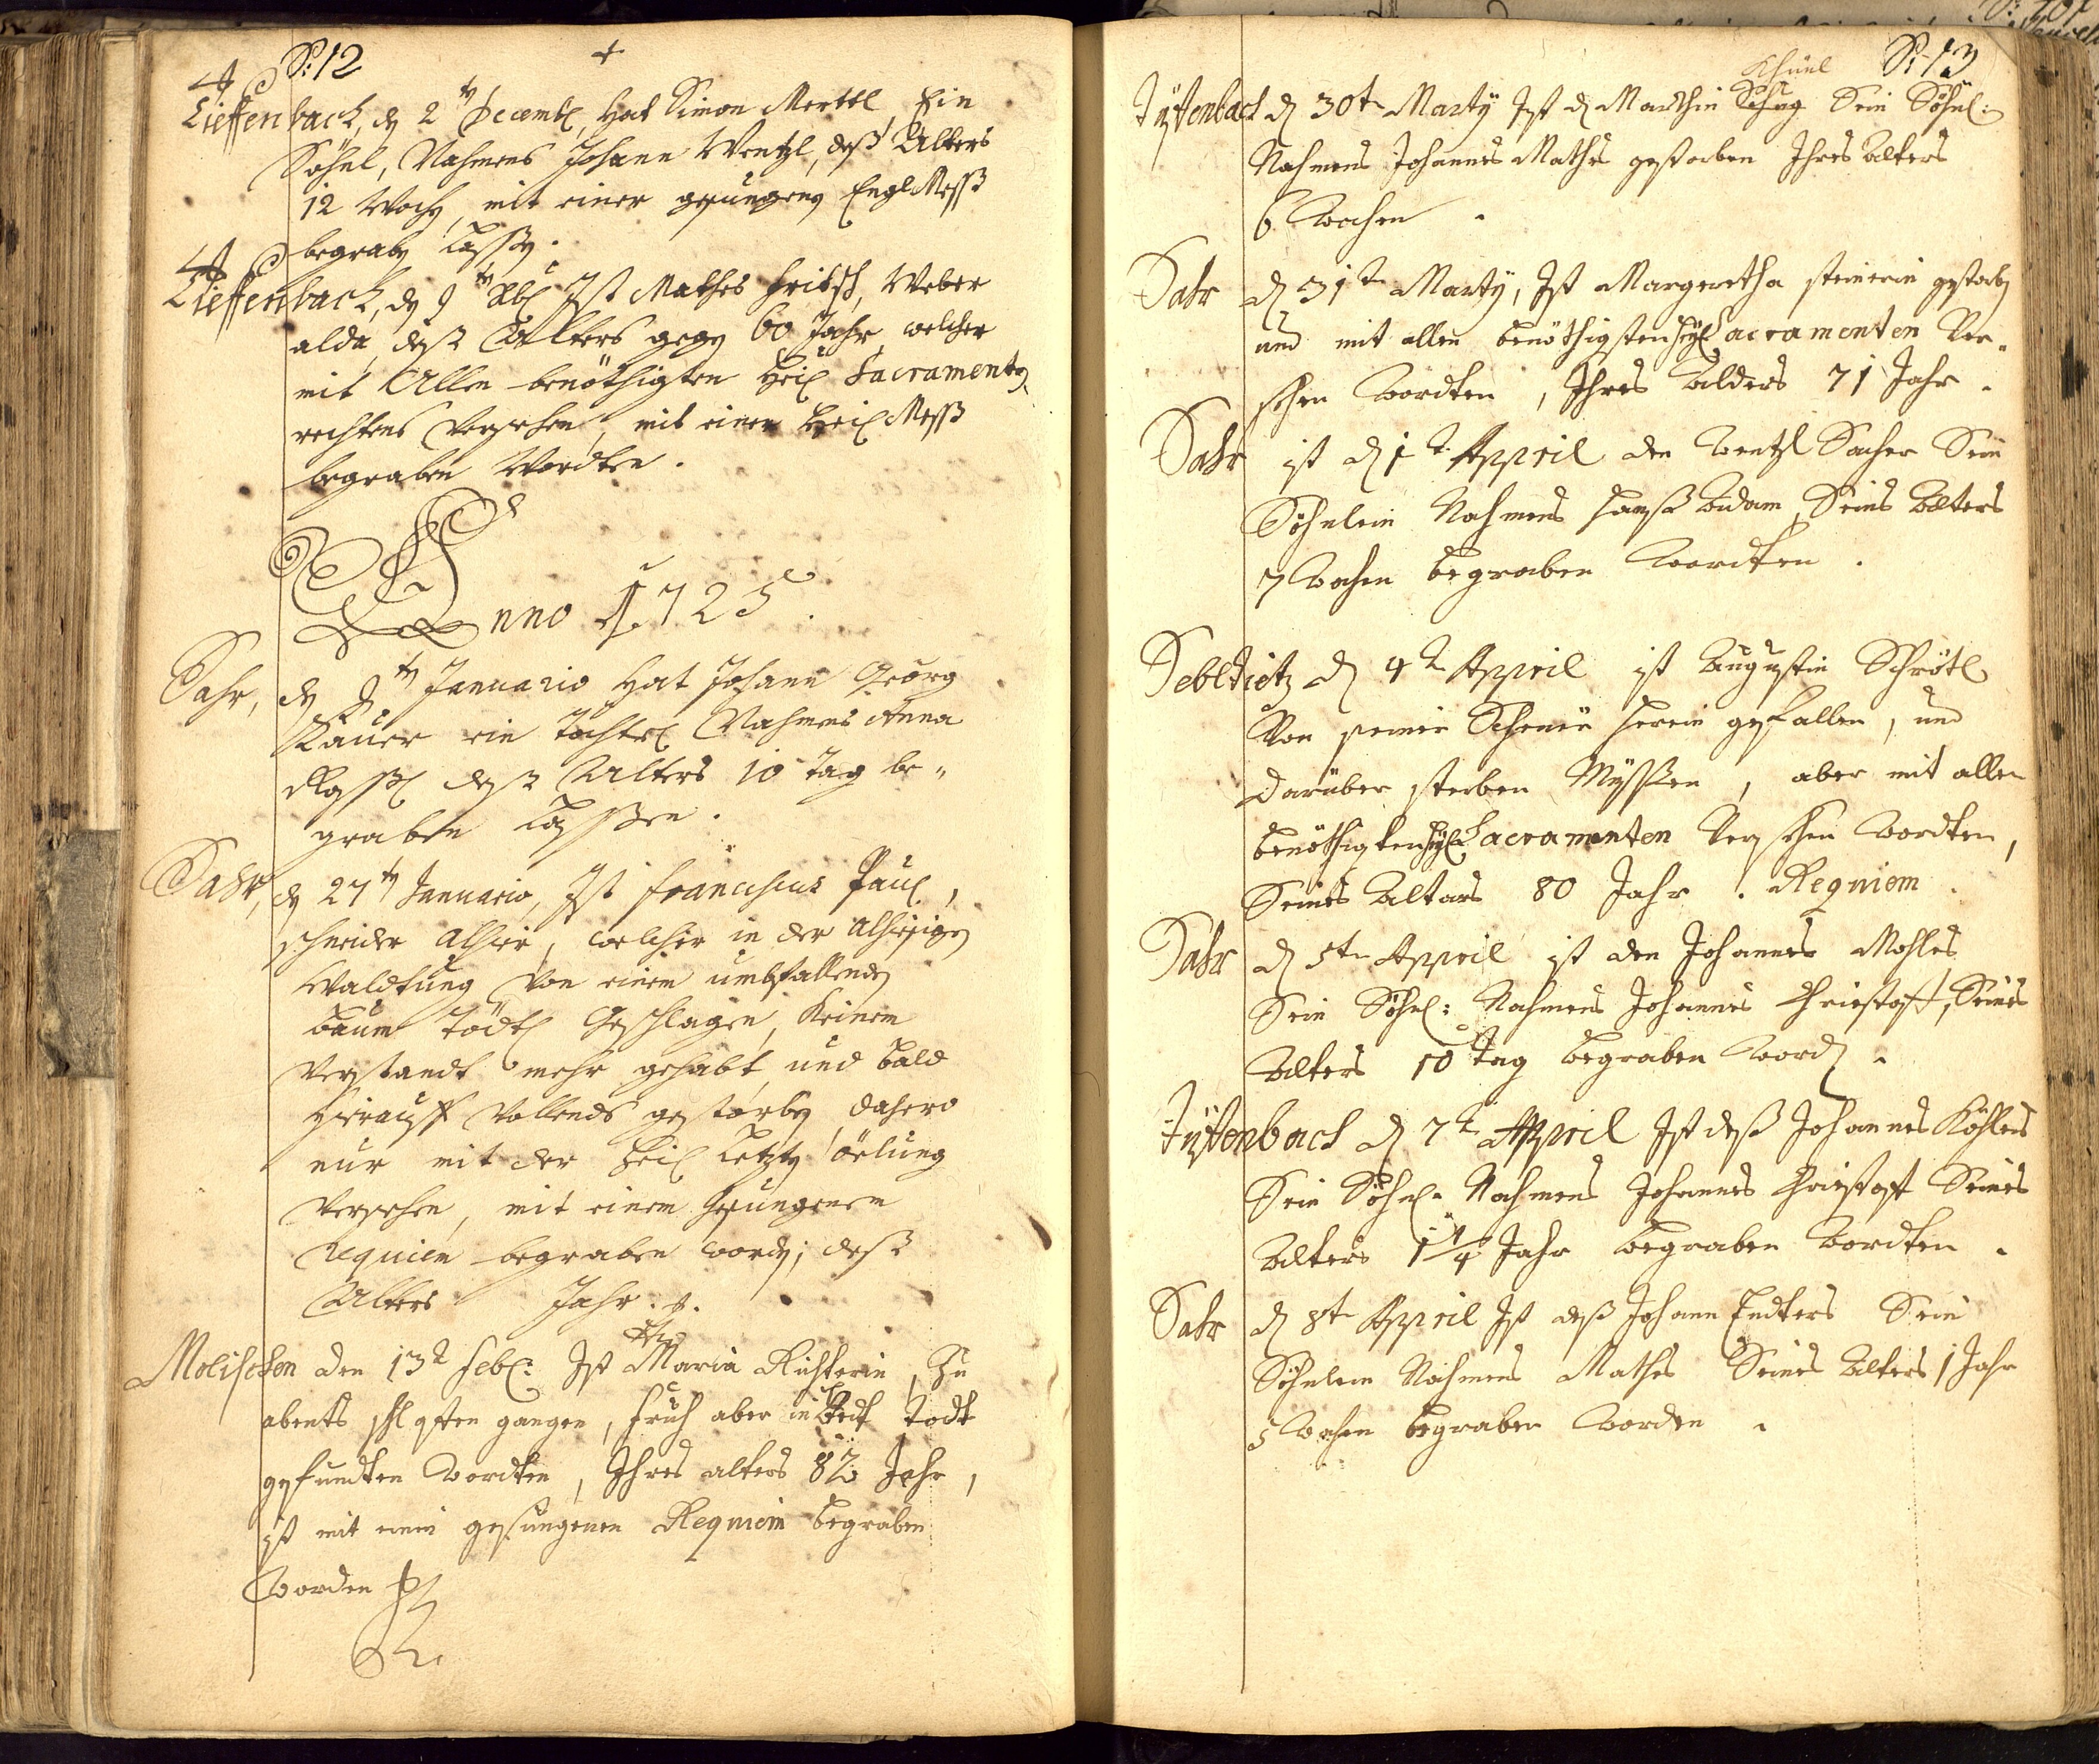 S: 12
Tieffenbach, den 2ten Decembl, Hat Simon Merttl, Ein
Söhnl, Nahmens Johann Wentzl, deß Alters
12 Wochen, mit einer gesungenen EnglMeß
begraben laßen.
Tieffenbach, den 9ten Xbl Ist Mathes Fritsch, Weber
alda, deß Alters gegen 60 Jahr, welcher
mit Allen benöthigten Heil Sacramenten
rechtens versehen, mit einer Heil Meß
begraben Wordten.
Anno 1725.
Dahr, den 9ten Januario Hat Johann Georg
Bauer ein Töchterl Nahmens Anna
deß Alters 10 Tag be-
graben laßen.
Dahr, den 27ten Januario, Ist Franciscus Paul,
schneider Alhier, welcher in der Alhiesigen
Waldtung von einem umbfallenden
baum Tödtl Geschlagen, Keinen
verstandt mehr gehabt, und bald
hierauff vollends gestorben, dahero
nur mit der Heil Letzten öelung
versehen, mit einem Gesungenen
Requiem begraben worden; deß
Alters Jahr.
Molischen den 13t Febl: Ist Maria Richterin, Zu
abents schlaffen gangen, fruh aber in bedt Todt
gefundten wordten, Ihres alters 82 Jahr,
ist mit einem gesungenen Requiem begraben
worden
S: 13
Khuel
Tyffenbach d 30t Marty Ist d Marthin Sein Söhnl:
Nahmens Johannes Mathes gestorben Ihres Alters
6 Wochen.
Dahr d 31t Marty, Ist Margeretha steinerin gestorben
und mit allen benöthigsten heyl Sacramenten Ver-
sehen Wordten, Ihres Alders 71 Jahr.
Dahr ist d 1t Appril den Wentzl Sacher Sein
Söhnlein Nahmens Hanß Adam, Seines Alters
7 Wochen begraben Wordten.
d 4t Appril ist Augustin Schrötl
Von seiner Scheuer herein gefallen, und
darüber sterben Müssen, aber mit allen
benöthigten heyl Sacramenten Versehen Wordten,
Seines Alters 80 Jahr. Requiem.
Dahr d 5te Appril ist den Johannes Mohles
Sein Söhnl: Nahmens Johannes Christoff, Seines
Alters 10 Tag begraben Worden.
Tyffenbach d 7t Appril Ist deß Johannes Köhlers
Sein Söhnl. Nahmens Johannes Christoff Seines
Alters 1 1/4 Jahr begraben Wordten.
Dahr d 8t Appril Ist deß Johann Endters Sein
Söhnlein Nahmens Mathes Seines Alters 1 Jahr
5 Wochen begraben Worden.